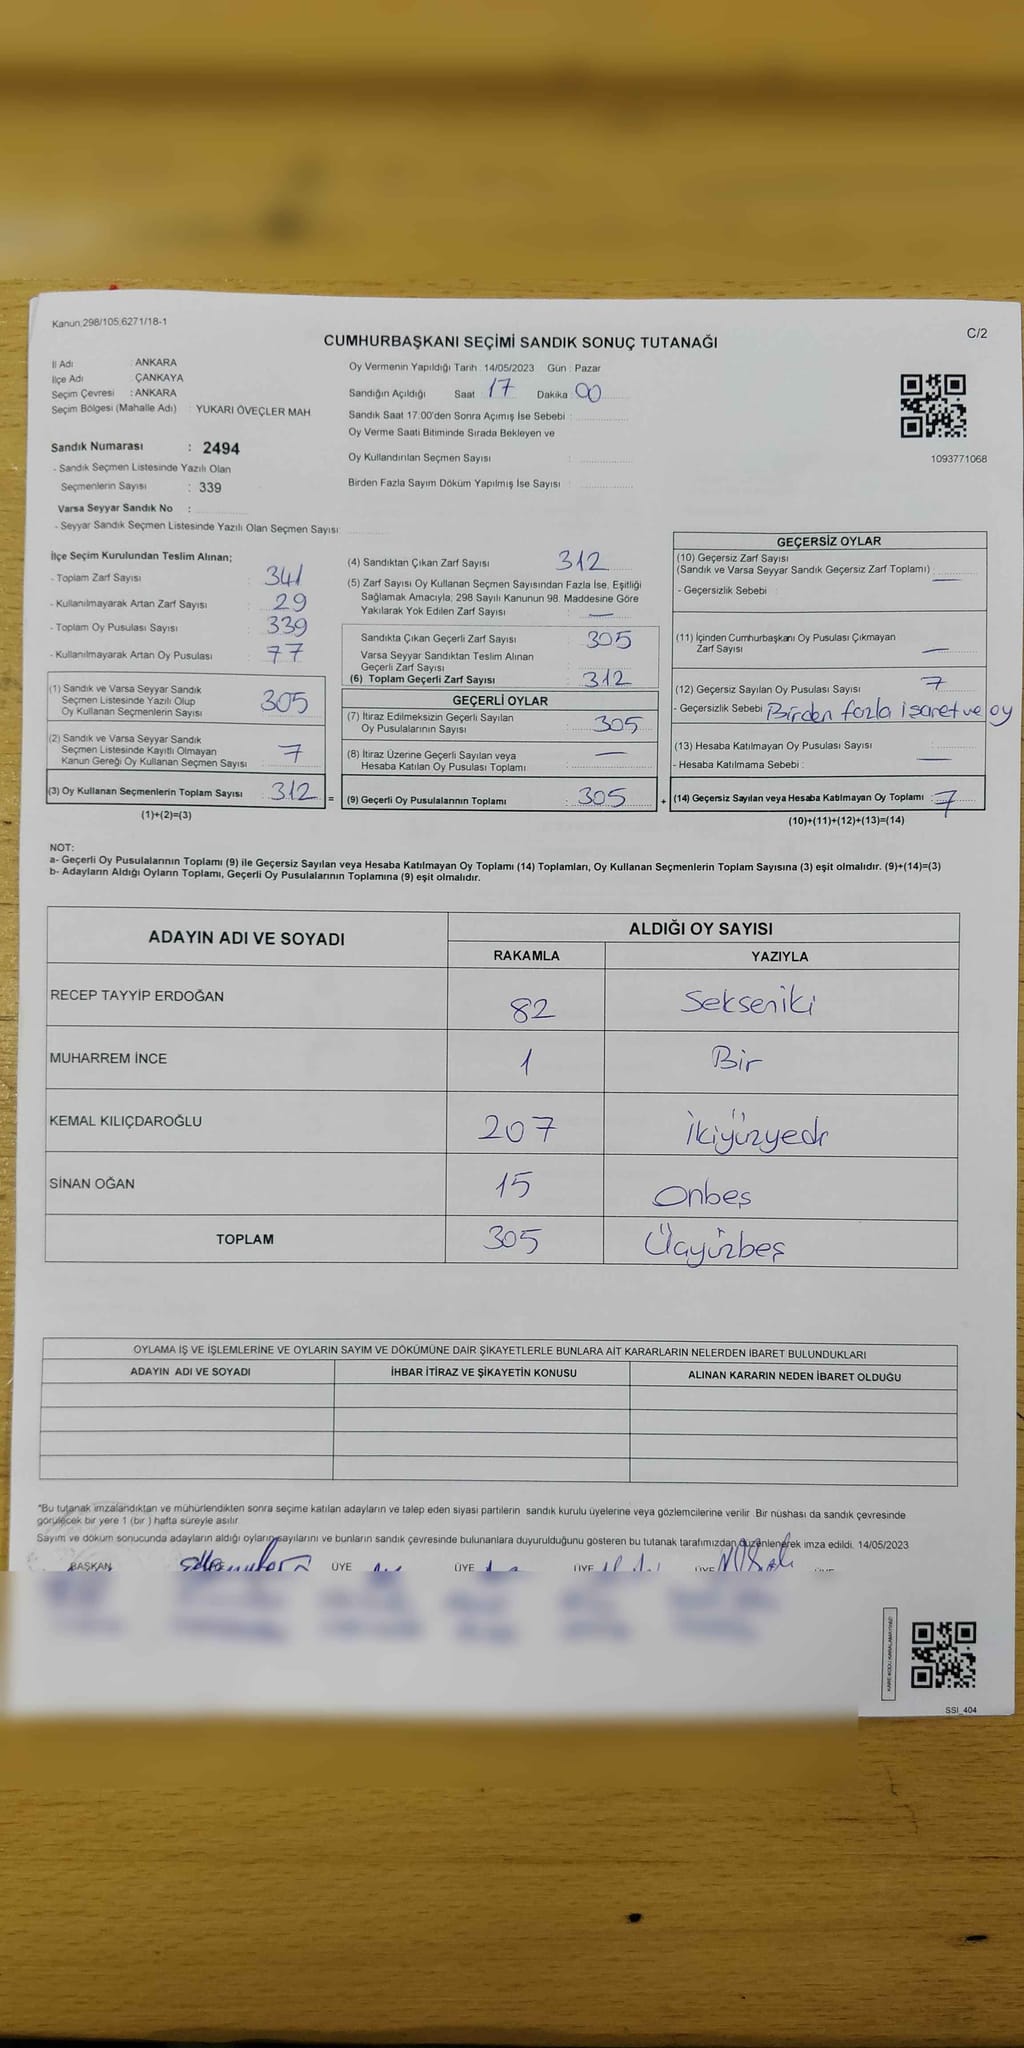 Kanun:298/105;6271/18-1
C/2
CUMHURBAŞKANI SEÇİMİ SANDIK SONUÇ TUTANAĞI
İl Adı : ANKARA
İlçe Adı : ÇANKAYA
Seçim Çevresi : ANKARA
Seçim Bölgesi (Mahalle Adı) : YUKARI ÖVEÇLER MAH
Sandık Numarası : 2494
- Sandık Seçmen Listesinde Yazılı Olan
Seçmenlerin Sayısı : 339
Varsa Seyyar Sandık No :
- Seyyar Sandık Seçmen Listesinde Yazılı Olan Seçmen Sayısı:
Oy Vermenin Yapıldığı Tarih : 14/05/2023 Gün : Pazar
Sandığın Açıldığı Saat 17 Dakika : 00
Sandık Saat 17:00'den Sonra Açımış İse Sebebi :
Oy Verme Saati Bitiminde Sırada Bekleyen ve
Oy Kullandırılan Seçmen Sayısı :
Birden Fazla Sayım Döküm Yapılmış İse Sayısı :
1093771068
İlçe Seçim Kurulundan Teslim Alınan;
- Toplam Zarf Sayısı : 341
- Kullanılmayarak Artan Zarf Sayısı : 29
- Toplam Oy Pusulası Sayısı : 339
- Kullanılmayarak Artan Oy Pusulası : 77
(1) Sandık ve Varsa Seyyar Sandık
Seçmen Listesinde Yazılı Olup
Oy Kullanan Seçmenlerin Sayısı : 305
(2) Sandık ve Varsa Seyyar Sandık
Seçmen Listesinde Kayıtlı Olmayan
Kanun Gereği Oy Kullanan Seçmen Sayısı : 7
(3) Oy Kullanan Seçmenlerin Toplam Sayısı : 312 =
(1)+(2)=(3)
(4) Sandıktan Çıkan Zarf Sayısı : 312
(5) Zarf Sayısı Oy Kullanan Seçmen Sayısından Fazla İse, Eşitliği
Sağlamak Amacıyla; 298 Sayılı Kanunun 98. Maddesine Göre
Yakılarak Yok Edilen Zarf Sayısı : —
Sandıkta Çıkan Geçerli Zarf Sayısı : 305
Varsa Seyyar Sandıktan Teslim Alınan
Geçerli Zarf Sayısı :
(6) Toplam Geçerli Zarf Sayısı : 312
GEÇERLİ OYLAR
(7) İtiraz Edilmeksizin Geçerli Sayılan
Oy Pusulalarının Sayısı : 305
(8) İtiraz Üzerine Geçerli Sayılan veya
Hesaba Katılan Oy Pusulası Toplamı : —
(9) Geçerli Oy Pusulalarının Toplamı : 305 +
GEÇERSİZ OYLAR
(10) Geçersiz Zarf Sayısı
(Sandık ve Varsa Seyyar Sandık Geçersiz Zarf Toplamı) : —
- Geçersizlik Sebebi :
(11) İçinden Cumhurbaşkanı Oy Pusulası Çıkmayan
Zarf Sayısı : —
(12) Geçersiz Sayılan Oy Pusulası Sayısı : 7
- Geçersizlik Sebebi : Birden fazla işaret ve oy
(13) Hesaba Katılmayan Oy Pusulası Sayısı :
- Hesaba Katılmama Sebebi : —
(14) Geçersiz Sayılan veya Hesaba Katılmayan Oy Toplamı : 7
(10)+(11)+(12)+(13)=(14)
NOT:
a- Geçerli Oy Pusulalarının Toplamı (9) ile Geçersiz Sayılan veya Hesaba Katılmayan Oy Toplamı (14) Toplamları, Oy Kullanan Seçmenlerin Toplam Sayısına (3) eşit olmalıdır. (9)+(14)=(3)
b- Adayların Aldığı Oyların Toplamı, Geçerli Oy Pusulalarının Toplamına (9) eşit olmalıdır.
ADAYIN ADI VE SOYADI ALDIĞI OY SAYISI
RAKAMLA YAZIYLA
RECEP TAYYİP ERDOĞAN 82 Sekseniki
MUHARREM İNCE 1 Bir
KEMAL KILIÇDAROĞLU 207 İkiyüzyedi
SİNAN OĞAN 15 Onbeş
TOPLAM 305 Üçyüzbeş
OYLAMA İŞ VE İŞLEMLERİNE VE OYLARIN SAYIM VE DÖKÜMÜNE DAİR ŞİKAYETLERLE BUNLARA AİT KARARLARIN NELERDEN İBARET BULUNDUKLARI
ADAYIN ADI VE SOYADI İHBAR İTİRAZ VE ŞİKAYETİN KONUSU ALINAN KARARIN NEDEN İBARET OLDUĞU
*Bu tutanak imzalandıktan ve mühürlendikten sonra seçime katılan adayların ve talep eden siyasi partilerin sandık kurulu üyelerine veya gözlemcilerine verilir. Bir nüshası da sandık çevresinde
görülecek bir yere 1 (bir ) hafta süreyle asılır.
Sayım ve döküm sonucunda adayların aldığı oyların sayılarını ve bunların sandık çevresinde bulunanlara duyurulduğunu gösteren bu tutanak tarafımızdan düzenlenerek imza edildi. 14/05/2023
BAŞKAN ÜYE ÜYE ÜYE ÜYE ÜYE
KARE KODU KARALAMAYINIZ!
SSI_404